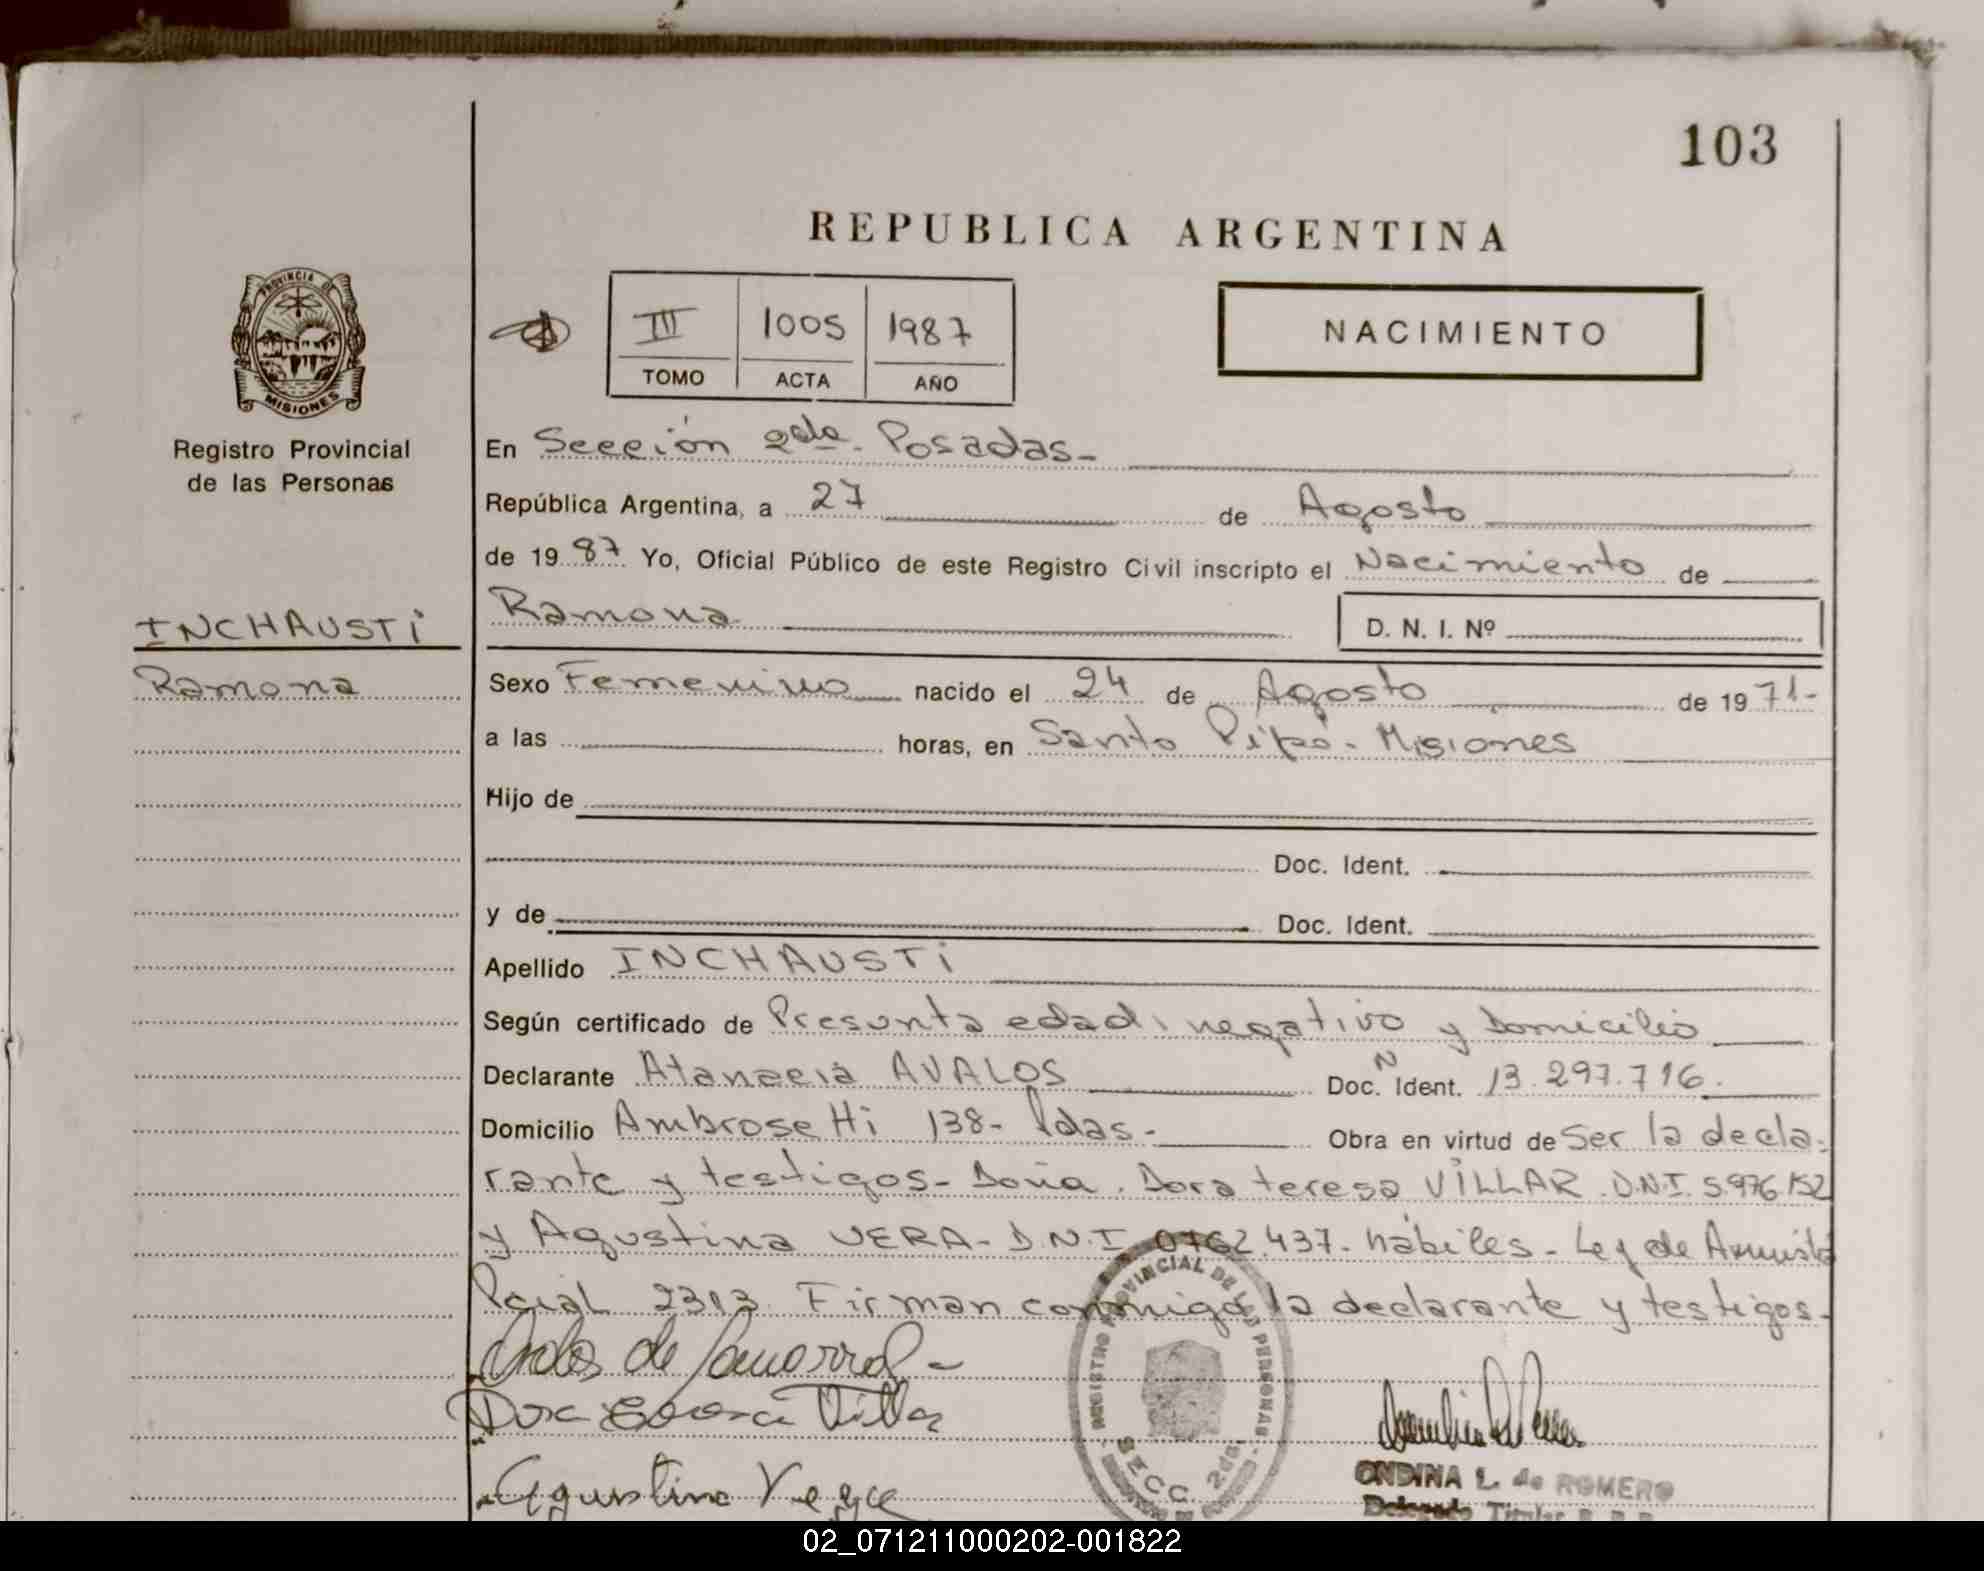 103
REPUBLICA ARGENTINA
PROVINCIA DE
MISIONES
Registro Provincial
de las Personas
III 1005 1987
TOMO ACTA AÑO
NACIMIENTO
En Sección 2da. Posadas-
República Argentina, a 27 de Agosto
de 1987 Yo, Oficial Público de este Registro Civil inscripto el Nacimiento de
INCHAUSTI
Ramona
Ramona D. N. I. Nº
Sexo Femenino nacido el 24 de Agosto de 1971-
a las horas, en Santo Pipó- Misiones
Hijo de
Doc. Ident.
y de Doc. Ident.
Apellido INCHAUSTI
Según certificado de Presunta edad, negativo y Domicilio
Declarante Atanacia AVALOS Doc. N Ident. 13.297.716.
Domicilio Ambrosetti 138- Pdas- Obra en virtud de Ser la decla-
rante y testigos- Doña. Dora teresa VILLAR. D.N.I. 5.976.152
y Agustina VERA- D.N.I 0762.437- hábiles- Ley de Amnistía
Pcial 2313. Firman conmigo la declarante y testigos-
REGISTRO PROVINCIAL DE LAS PERSONAS
SECC. 2da.
Agustina
ONDINA L. de ROMERO
Delegado Titular
02_071211000202-001822